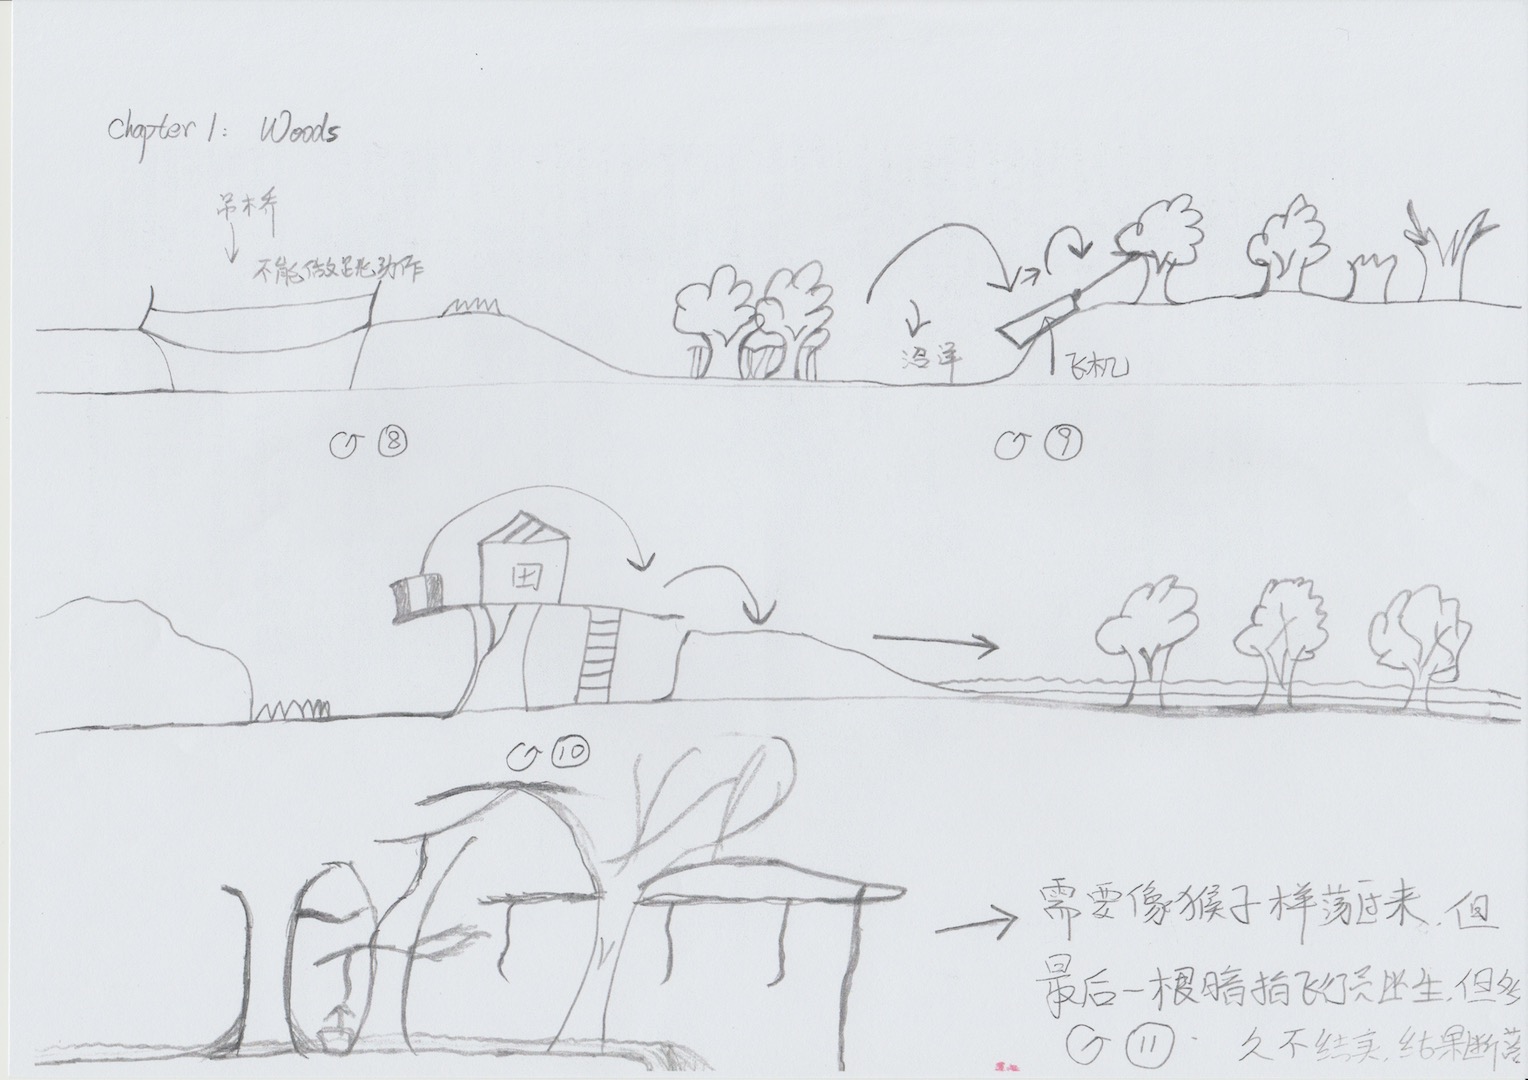 Chapter 1: Woods
吊桥
不能做跳动作
沼泽
飞机
⑧
⑨
⑩
需要像猴子样荡过来,但
最后一根暗指飞行员出生,但多
久不结实,结果断落
⑪